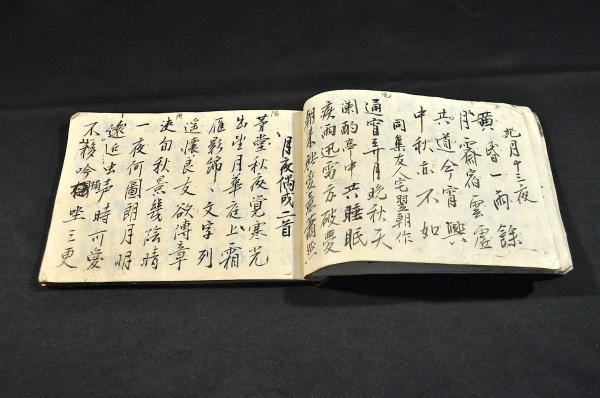 九月十三夜
黄昏一雨餘
月霽宿雲虚
共道今宵興
中秋亦不如
同集友人宅翌朝作
通宵弄月晩秋天
闌酌亭中共睡眠
疾雨迅雷方破夢
月夜偶成二首
茅堂秋夜覚寒光
出坐月華庭上霜
雁影帰、文字列
遥懐良友欲傳章
浹旬秋景幾陰晴
一夜何圖朗月明
遠近虫声時可愛
不移吟坐三更